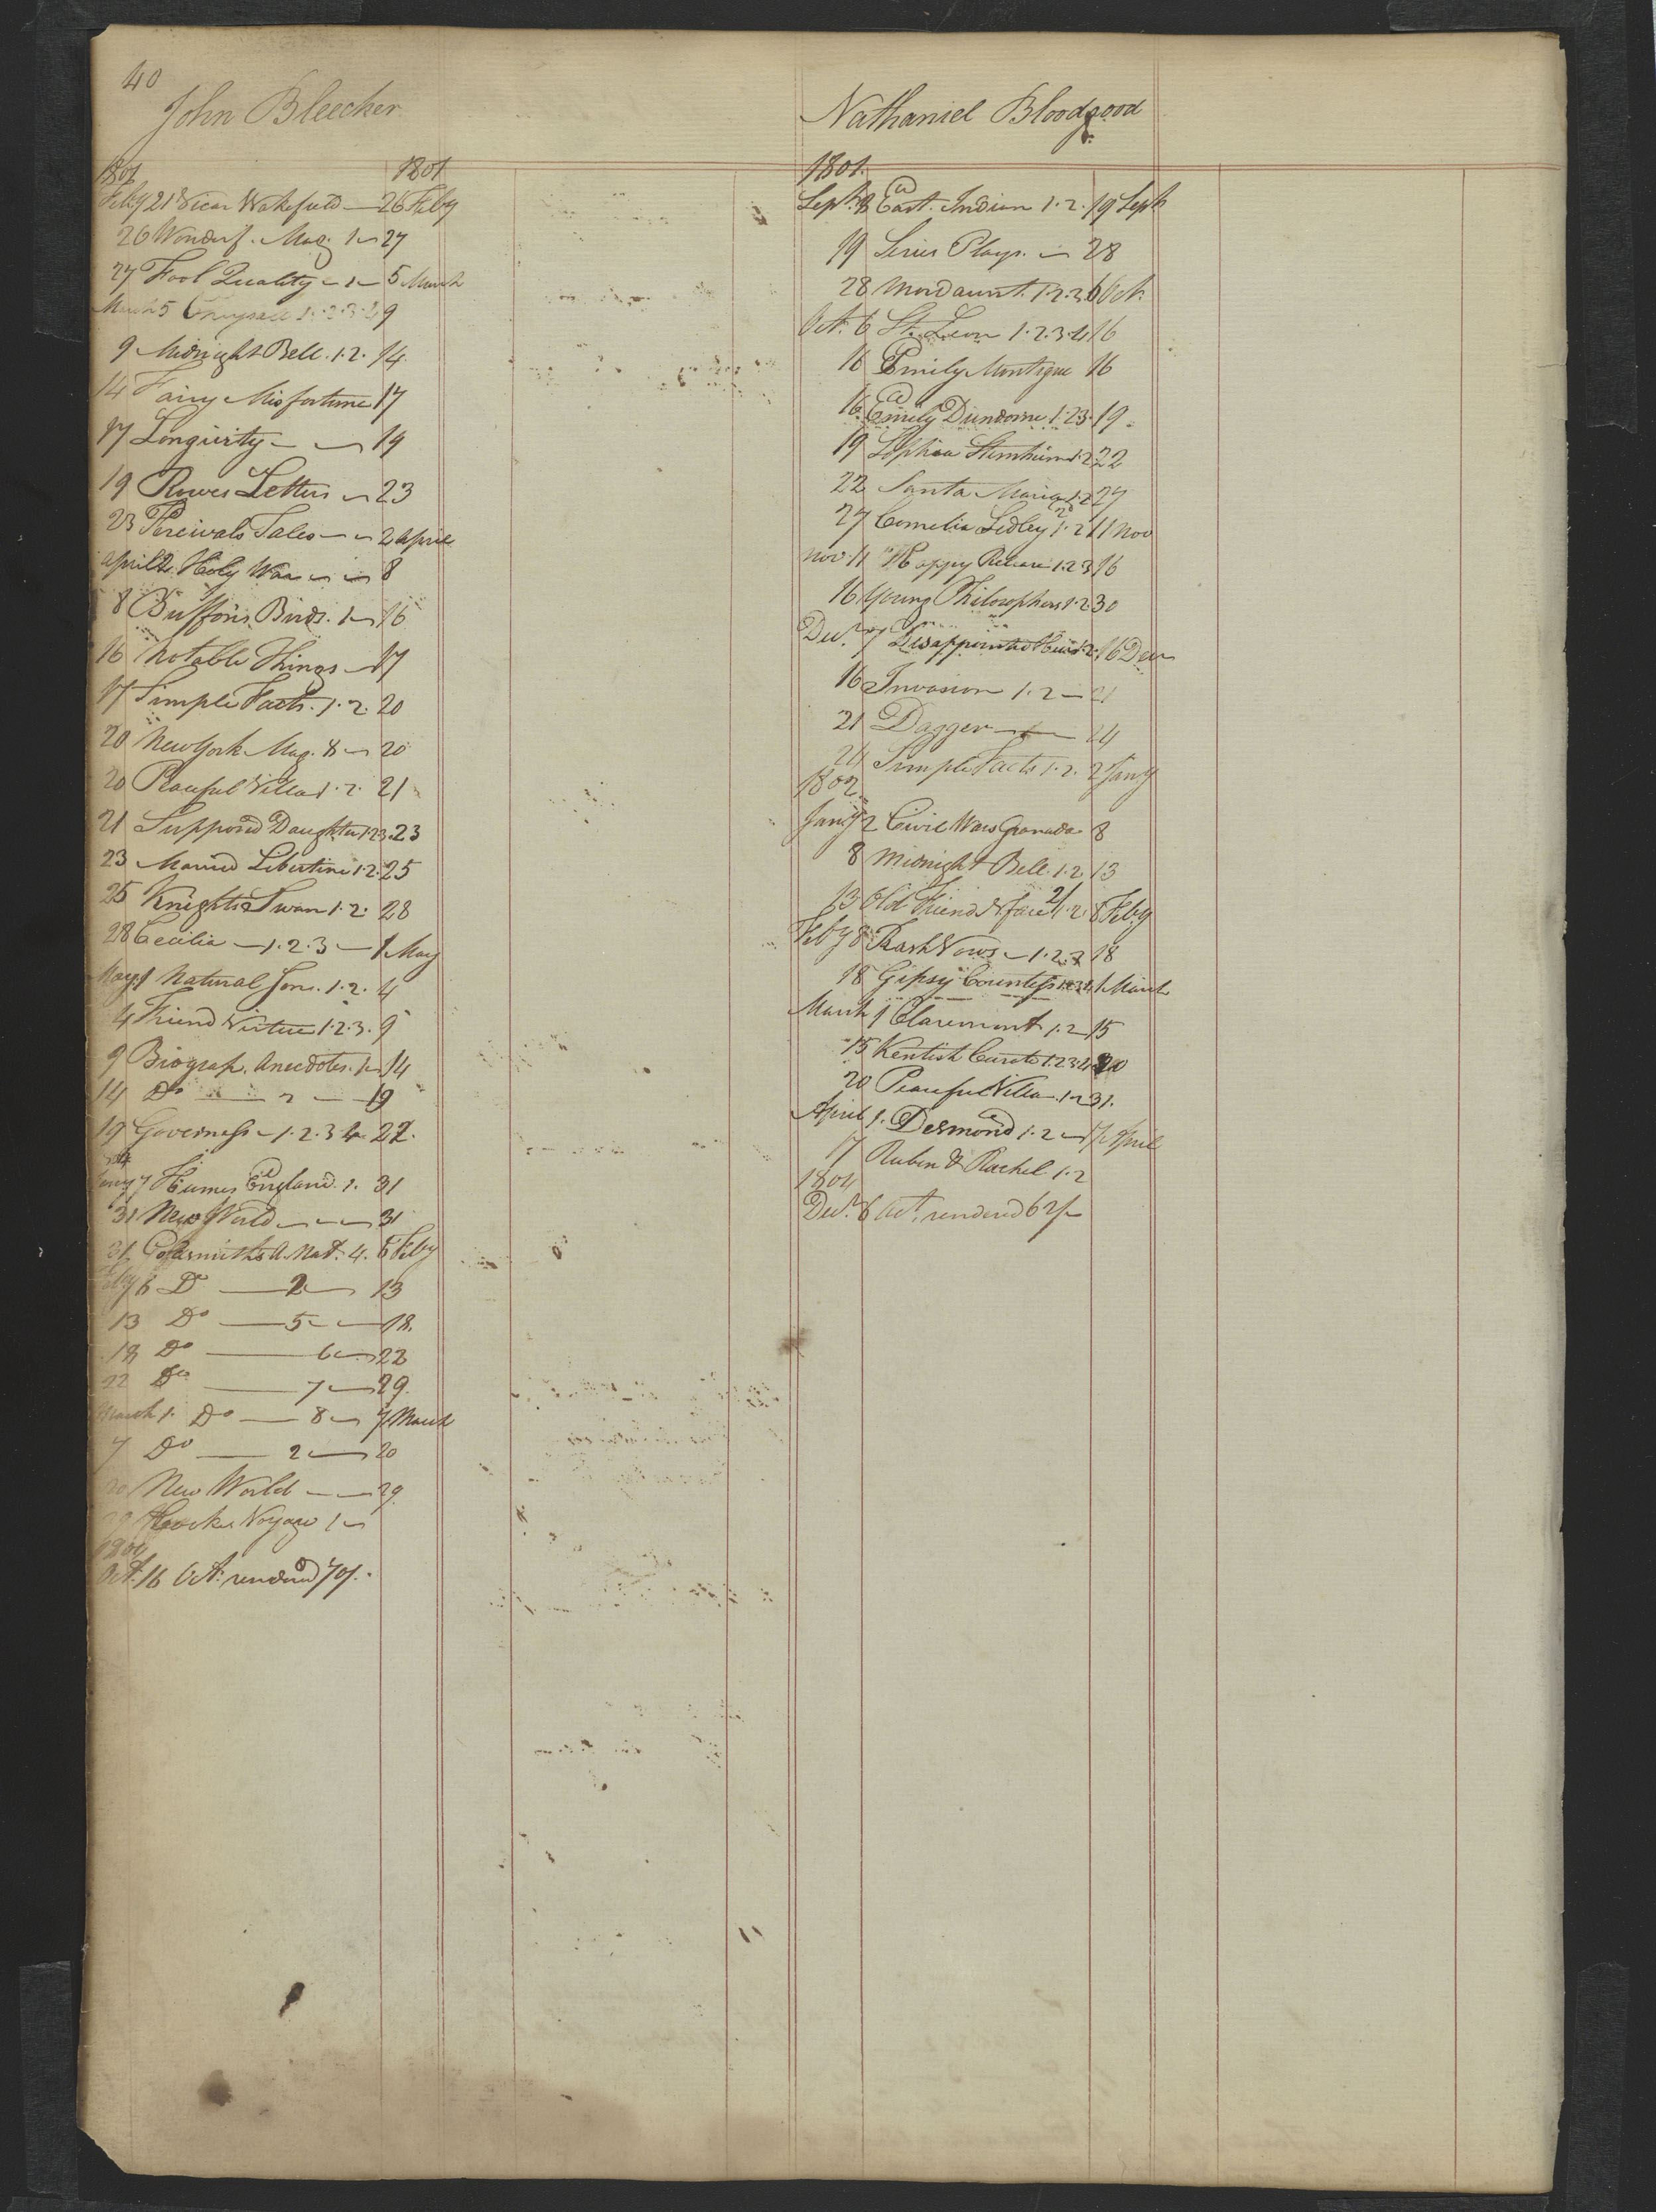 40
John Bleecker
1801 1801
Feby 21 Vicar Wakefield — 26 Feby
26 Wonderf. Mag. 1 — 27
27 Fool Quality — 1 — 5 March
March 5 Chrysall 1.2.3.4 9
9 Midnight Bell. 1.2. 14
14 Fairy Misfortune 17
17 Longivity — — 19
19 Rowes Letters — 23
23 Percivals Tales — — 2 April
April 2 Holy War — — 8
8 Buffons Birds. 1 — 16
16 Notable Things — 17
17 Simple Facts. 1.2. 20
20 New York Mag. 8 — 20
20 Peaceful Villa 1.2. 21
21 Supposed Daughter 1.2.3. 23
23 Married Libertine 1.2. 25
25 Knights Swan 1.2. 28
28 Cecilia — 1.2.3 — 1 May
May 1 Natural Son. 1.2. 4
4 Friend Virtue 1.2.3. 9
9 Biograp. Anecdotes. 1 — 14
14 Do — 2 — 19
19 Governess — 1.2.3.4 22.
7 Humes England. 1. 31
31 New World — — — 31
31 Goldsmiths A. Nat. 4. 6 Feby
Feby 6 Do — 2 — 13
13 Do — 5 — 18.
18 Do — 6 — 22
22 Do — 7 — 29.
March 1. Do — 8 — 7 March
7 Do — 2 — 20
20 New World — — 29.
29 Cooks Voyage 1 —
1804
Oct. 16 Act. rendered 70/.
Nathaniel Bloodgood
1801.
Sept. 8 East. Indian 1.2. 19 Sept
19 Series Plays. — 28
28 Mordaunt. 1.2.3 6 Oct.
Oct. 6 St. Leon 1.2.3.4 16
16 Emily Montigue 16
16 Emily Dundorne 1.2.3. 19
19 Sophia Sternheim 1.2 22
22 Santa Maria 1.2 27
27 Cornelia Sedley 1.2 11 Nov
Nov. 11 Happy Release 1.2.3 16
16 Young Philosophers 1.2. 30
Decr. 7 Disappointed Heir 1.2. 16 Decr
16 Invasion 1.2 — 21
21 Dagger — 24
24 Simple Facts 1.2. 2 Jany
1802
Jany 2 Civil Wars Granada 8
8 Midnight Bell. 1.2 13
13 Old Friend N. face 2/ 1.2. 8 Feby
Feby 8 Rash Vows — 1.2.3 18
18 Gipsy Countess 1.2.3.4 1 March
March 1 Claremont 1.2 15
15 Kentish Curate 1.2.3.4 20
20 Peaceful Villa. 1.2 31.
April 1. Desmond 1.2 — 17 April
17 Ruben & Rachel. 1.2
1804
Decr. 6 Act. rendered 62/—